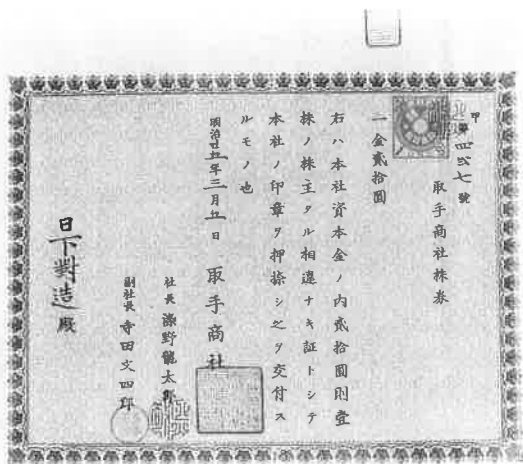 甲第四弐七號
取手商社株券
一金貳拾圓
右ハ本社資本金ノ内貳拾圓則壹
株ノ株主タル相違ナキ証トシテ
本社ノ印章ヲ押捺シ之ヲ交付ス
ルモノ也
明治廿五年三月五日
取手商社
社長 染野龍太郎
副社長 寺田文四郎
日下對造殿